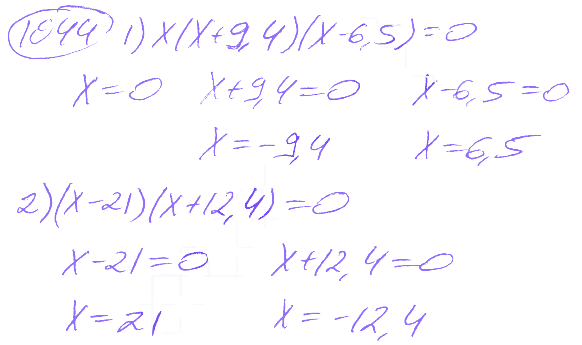 1044 1) x(x+9,4)(x-6,5)=0
x=0 x+9,4=0 x-6,5=0
x=-9,4 x=6,5
2)(x-21)(x+12,4)=0
x-21=0 x+12,4=0
x=21 x=-12,4